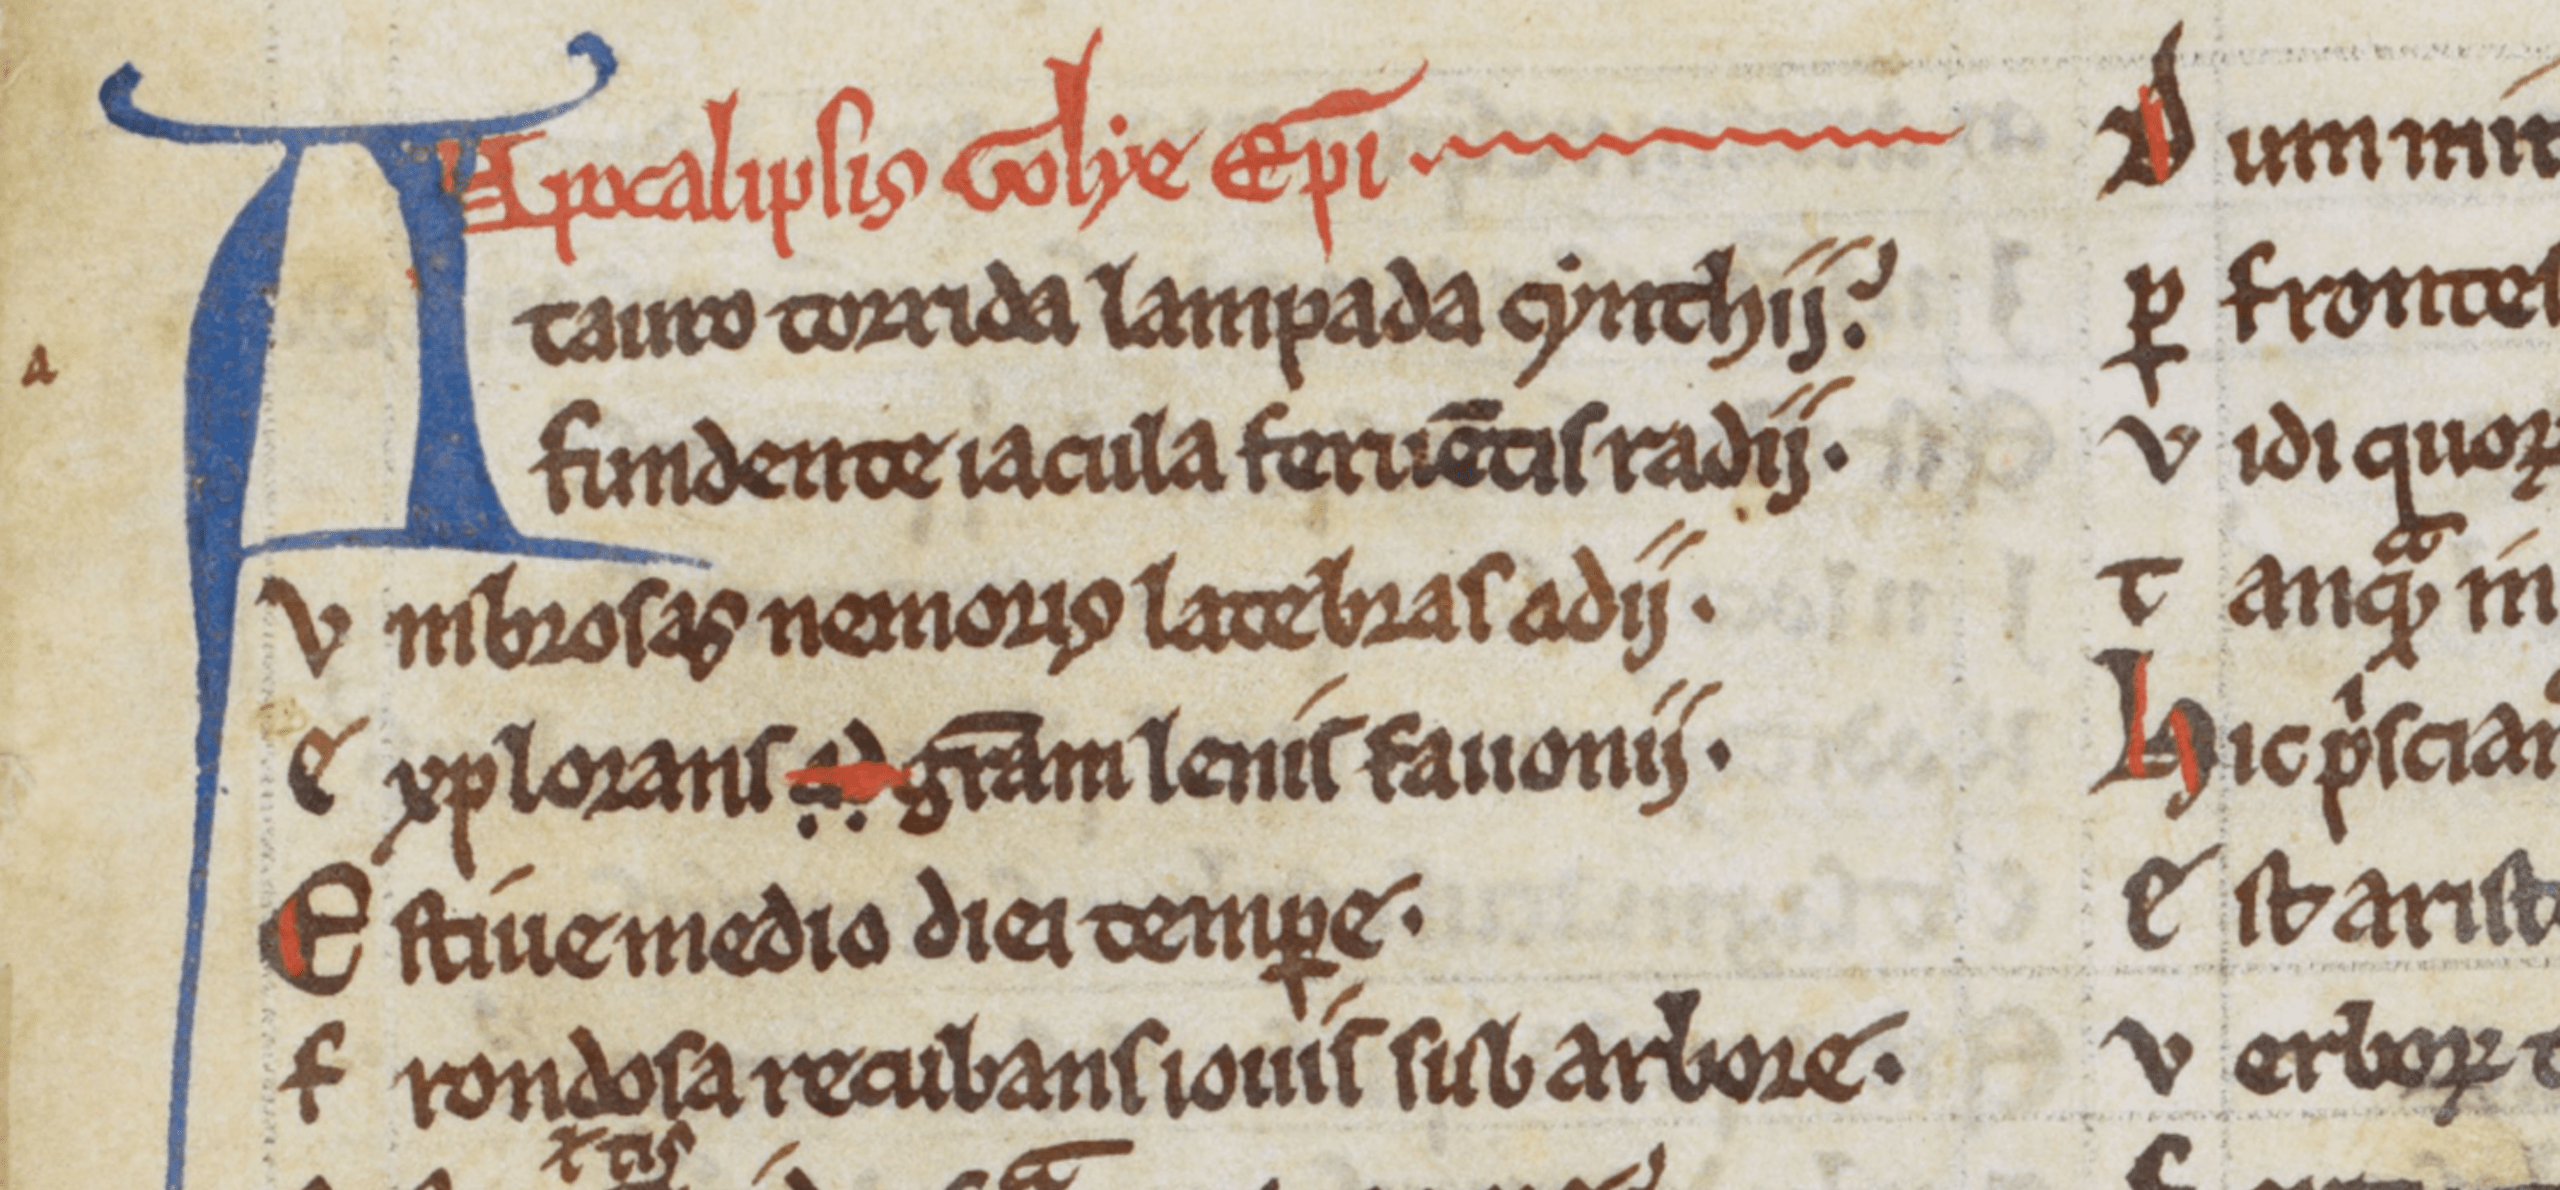 Apocalipsis Golye Ep̄i
A tauro torrida lampada cynthij.
fundente iacula feruētis radij.
Vmbrosas nemoris latebras adij.
explorans gr̄am lenis fauonij.
Estiue medio diei temꝑe.
frondosa recubans iouis sub arbore.
a
Dum mir
ꝑ frontes
vidi quoꝝ
tanqᷓ; in
hic pͥscian
est arist
verboꝝ t